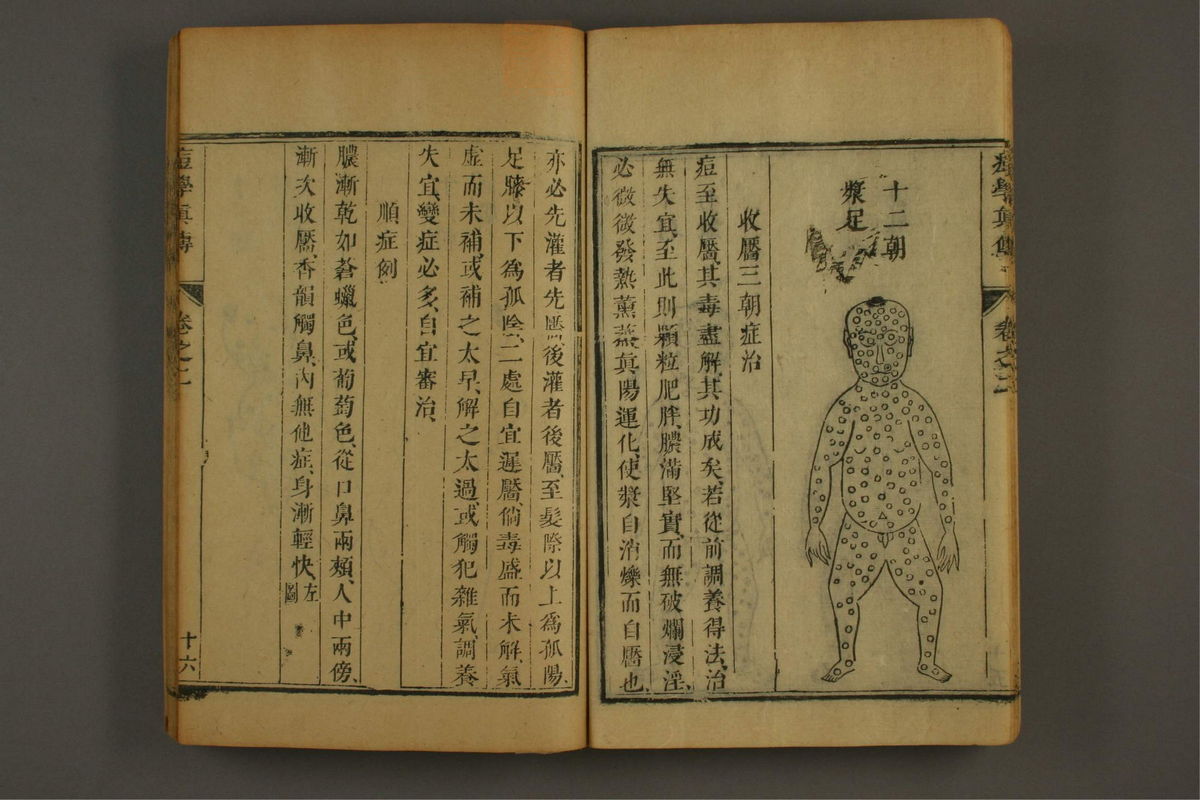 痘學真傳
卷之二
十二朝
漿足
收靨三朝症治
痘至收靨、其毒盡解、其功成矣、若從前調養得法、治
無失宜、至此則顆粒肥胖、膿滿堅實、而無破爛浸淫、
必微微發熱薰蒸、眞陽運化、使漿自消爍而自靨也、
亦必先灌者先靨、後灌者後靨、至髮際以上爲孤陽、
足膝以下爲孤陰、二處自宜遲靨、倘毒盛而未解、氣
虛而未補、或補之太早、解之太過、或觸犯雜氣、調養
失宜、變症必多、自宜審治、
順症例
膿漸乾如蒼蠟色、或葡萄色、從口鼻兩頰、人中兩傍、
漸次收靨、香韻觸鼻、內無他症、身漸輕快、左圖
痘學眞傳
卷之二
十六